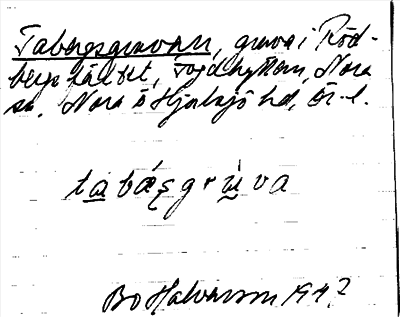 Tabergsgruvan, gruva i Röd-
bergsfältet, Fogdhyttan, Nora
sn. Nora o Hjulsjö hd, Ör. l.
tabásgrùva
Bo Halvarson 194?